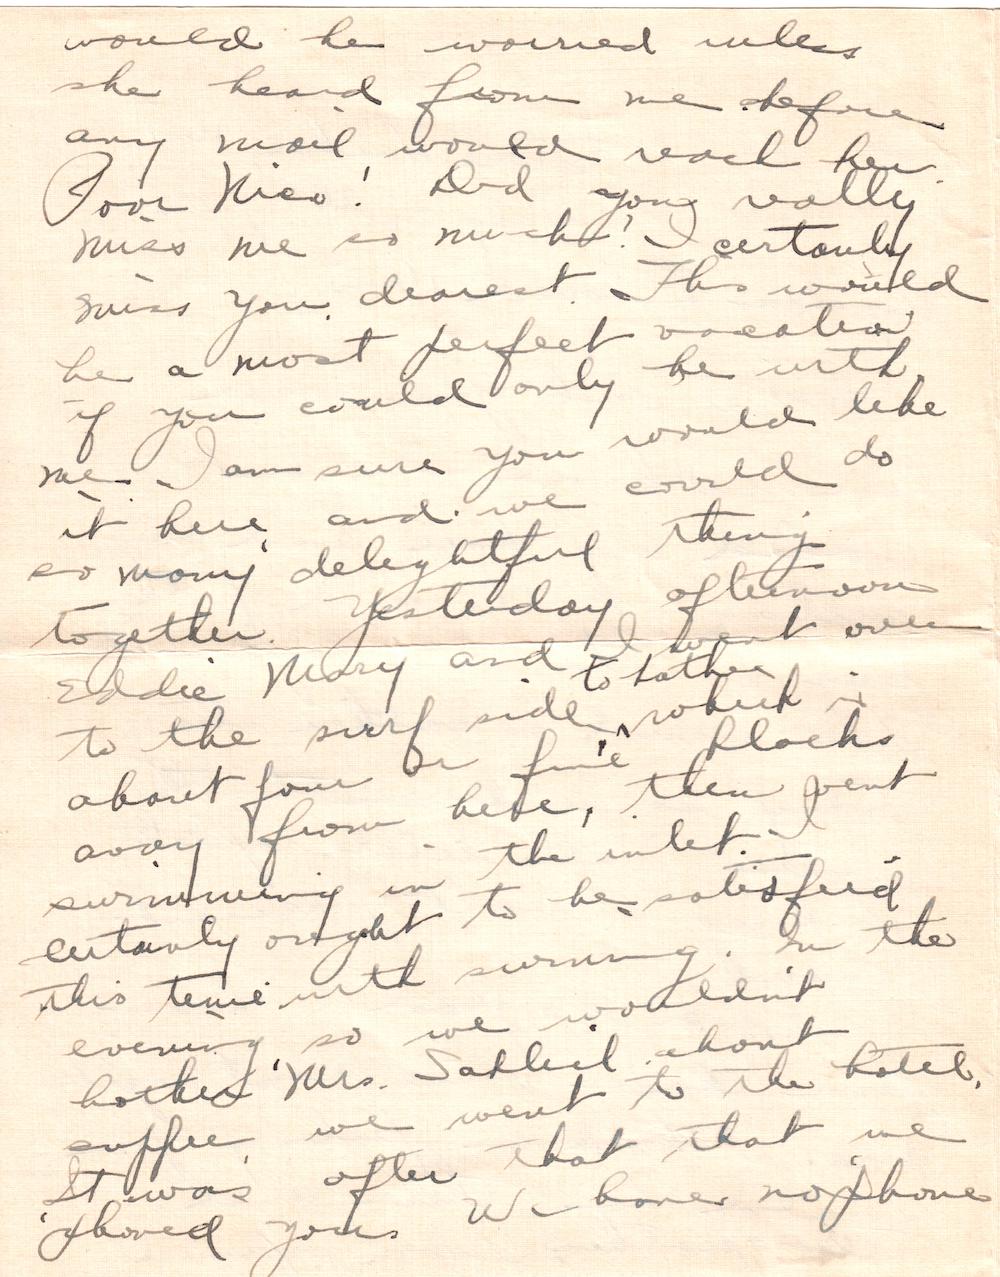 would be worried unless
she heard from me before
any mail would reach her.
Poor Nico! Did you really
miss me so much? I certainly
miss you, dearest. This would
be a most perfect vacation
if you could only be with
me. I am sure you would like
it here, and we could do
so many delightful things
together. Yesterday afternoon
Eddie Mary and I went over
to the surf side ^ to bathe which is
about four or five blocks
away from here, then went
swimming in the inlet. I
certainly ought to be satisfied
this time with swimming. In the
evening so we wouldn't
bother Mrs. about
supper we went to the hotel.
It was after that that we
'phoned you. We have no 'phone